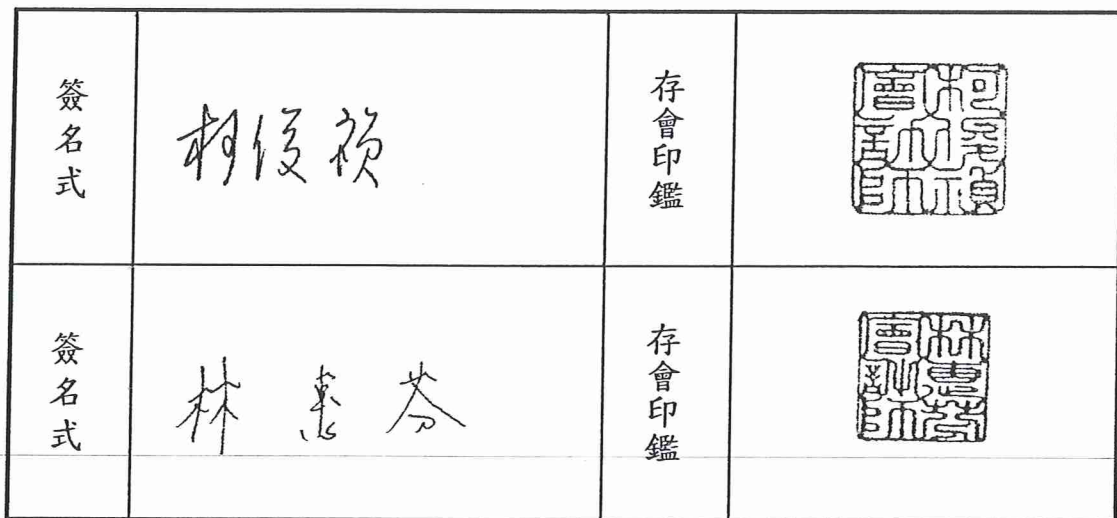 簽名式
柯俊禎
存會印鑑
柯俊禎會計師
簽名式
林惠芬
存會印鑑
林惠芬會計師